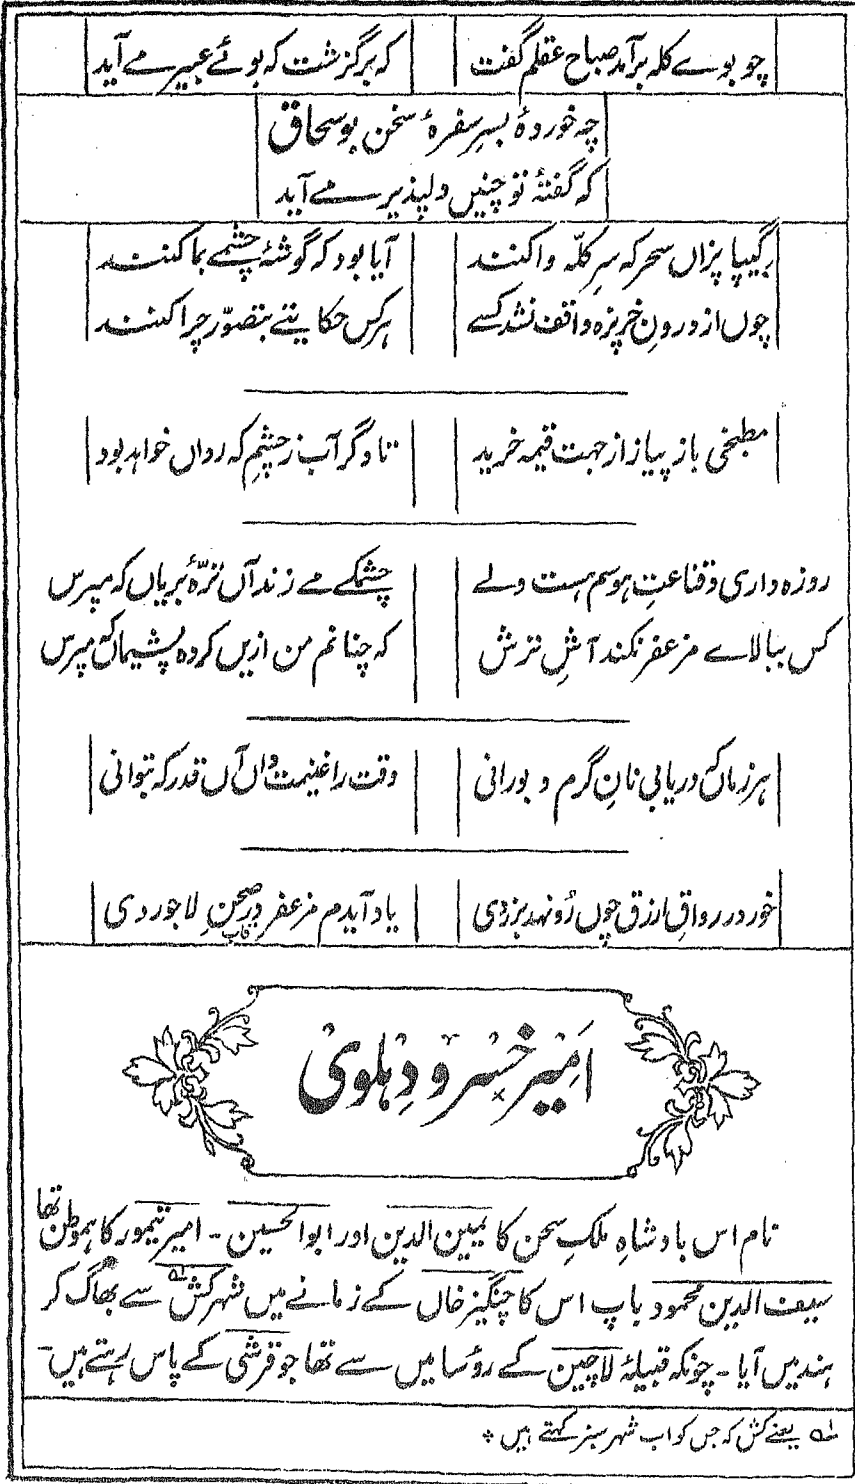 چو بوے کلہ برآمد صباح عقلم گفت کہ برگزشت کہ بوئے عبیر مے آید
چہ خوردۂ بسرِ سفرۂ سخن بوسحاق
کہ گفتۂ تو چنیں دلپذیر مے آید
گیپا پزاں سحر کہ سرِ کلّہ وا کنند آیا بود کہ گوشۂ چشمے بما کنند
چوں از درونِ خرپزہ واقف نشد کسے ہر کس حکایتے بتصوّر چرا کنند
مطبخی باز پیاز از جہت قیمہ خرید تا دگر آب ز چشمِ کہ رواں خواہد بود
روزہ داری و قناعتِ ہوسم ہست ولے چشمکے مے زند آں ترّۂ بریاں کہ مپرس
کس ببالاے مزعفر نکند آشِ ترش کہ چنانم من ازیں کردہ پشیماں کہ مپرس
ہر زماں کہ دریابی نانِ گرم و بورانی وقت را غنیمت داں آں قدر کہ بتوانی
خور در رواقِ ازرق چوں رُو نہد بزردی یاد آیدم مزعفر در صحنِ لاجوردی
قاب
امیر خسرو دہلوی
نام اس بادشاہِ ملکِ سخن کا یمین الدین اور ابوالحسین ۔ امیر تیمور کا ہموطن تھا
سیف الدین محمود باپ اس کا چنگیز خاں کے زمانے میں شہر کش لہ سے بھاگ کر
ہند میں آیا ۔ چونکہ قبیلۂ لاچین کے رؤسا میں سے تھا جو قرشی کے پاس رہتے ہیں ۔
لہ یعنے کش کہ جس کو اب شہر سبز کہتے ہیں ٭